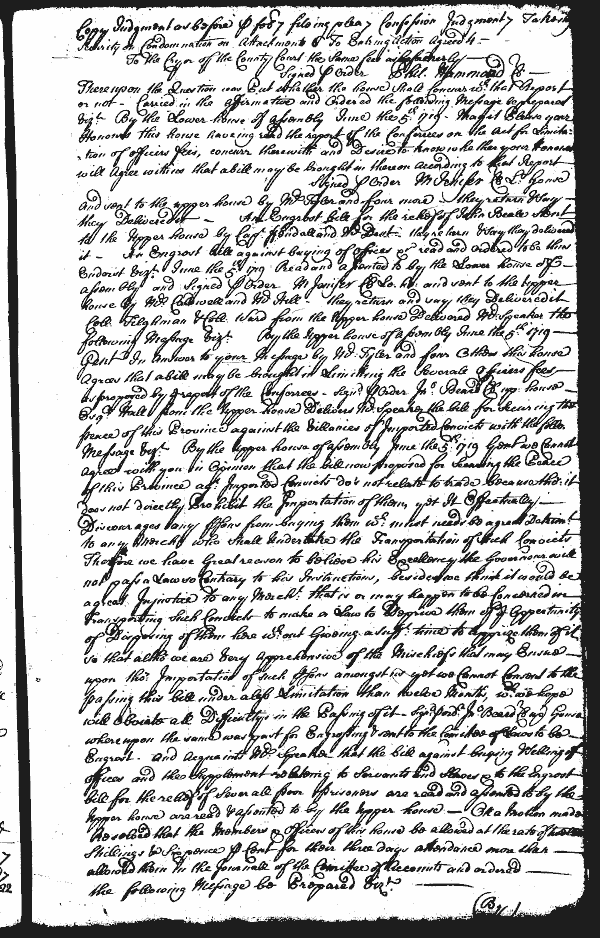 Copy Judgment as before & for 7 filing plea 7 Confession Judgment 7 Taking
Security on Condemnation on Attachment 8 To Entring Action Agreed 4 -
To the Cryer of the County Court the Same fees as
Signed & Order Phil. Hammond
Thereupon the Question was Put whether the house Shall Concurr wth that Report
or not - Carried in the affirmative and Ordered the following Message be prepared
Vizt By the Lower house of assembly June the 5th 1719 - May it Please your
Honours this house haveing read the report of the Conferrees on the Act for Limita
-tion of officers fees, concurr therewith and Desire to know whether your honours
will agree with us that a bill may be brought in thereon according to that Report
Signed & Order M Jenifer Cl Lo. House
And sent to the upper house by Mr Tyler and four more - they return & Say
they Delivered it - An Engrost bill for the relief of John Beale Sent
to the Upper house by Capt. and Mr - they return & Say they delivered
it - An Engrost bill against buying of offices & read and ordered to be thus
Endorst Vizt June the 5th 1719 Read and assented to by the Lower house of
assembly and Signed & Order M Jenifer Cl Lo. ho: and sent to the upper
house by Mr and Mr - they return and say they Delivered it
Coll. Tilghman & Coll. Ward from the Upper house Delivered Mr Speaker the
following Message Vizt By the Upper house of assembly June the 5th 1719 -
Gent. In answer to your Message by Mr Tyler and four others this house
Agrees that a bill may be brought in Limiting the Severale officers fees
as proposed by report of the Conferrees - Signd & Order Jno Beard Cl up. house
Esqr from the Upper house Delivers Mr Speaker the bill for securing the
peace of this Province against the Villanies of Imported Convicts with the
Message Vizt By the Upper house of assembly June the 5th 1719 Gent we Cannot
Agree with you in Opinion that the bill now proposed for Securing the Peace
of this Province agt Imported Convicts do's not relate to trade because tho: it
does not directly Prohibit the Importation of them, yet It Effectually
Discourages any from buying them wch must needs be a great Detrimt
to any Mercht who Shall Undertake the Transportation of Such Convicts
Therefore we have Great reason to believe his Excellency the Governour will
not pass a Law so Contrary to his Instructions, besides we think it would be
a great Injustice to any Mercht that is or may happen to be Concerned in
Transporting Such Convicts to make a Law to Deprive them of ye Oppertunity
of Disposing of them here wthout Giveing a suft time to apprize them of it
so that altho we are very Apprehensive of the Mischiefs that may Ensue
upon the Importation of such amongst us yet we Cannot Consent to the
passing this bill under a less Limitation than twelve Months, wch we hope
will obviate all Difficultys in the Passing of it - Signd Jno Beard Cl up house
whereupon the same was past for Engrossing & sent to the Comittee of Laws to be
Engrost - And Acquaints Mr Speaker that the bill against buying & selling of
offices and the Supplement relateing to Servants and Slaves & to the Engrost
bill for the relief of Severall poor Prisoners are read and assented to by the
Upper house are read & assented to by the Upper house - On a Motion made
Resolved that the Members & officers of this house be allowed at the rate of
Shillings & Sixpence & Cent for their three days attendance more than
allowed them in the Journall of the Comittee of Accounts and ordered
the following Message be Prepared Vizt
(By